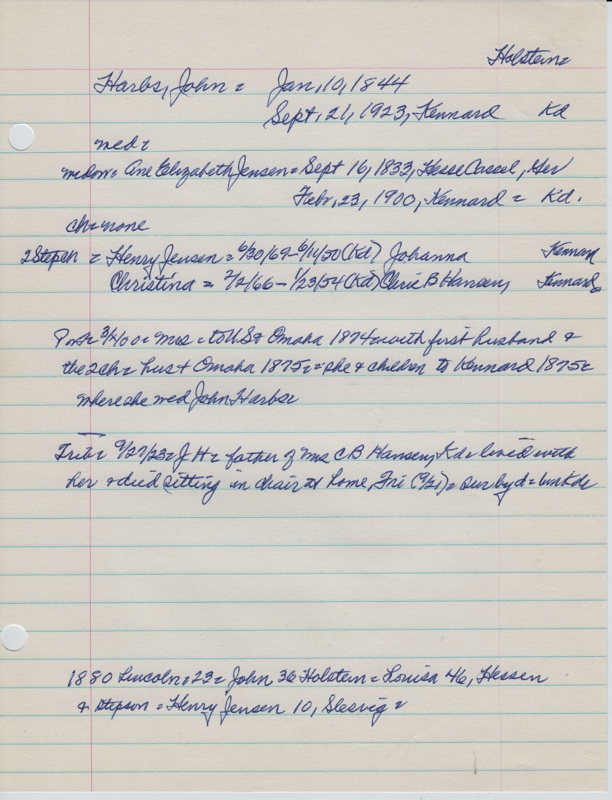 Holstein=
Harbs, John = Jan, 10, 1844
Sept, 21, 1923, Kennard Kd
med =
mdow = Ane Elizabeth Jensen = Sept 16, 1833, Hesse Cassel, Ger
Febr, 23, 1900, Kennard = Kd.
ch = none
2 Stepch = Henry Jensen = 6/30/69 - 6/11/50 (Kd) Johanna Kennard
Christina = 2/2/66 - 1/23/54 (Kd) Chris B Hansen, Kennard =
3/2/00 = Mrs = to US & Omaha 1874 = with first husband &
the 2ch = hus + Omaha 1875 = she & children to Kennard 1875 =
where she med John Harbs =
Trib = 9/27/23 = J H = father of Mrs C B Hansen, Kd = lived with
her & died sitting in chair at home, Fri (9/21) = sur by d = bur Kd =
1880 Lincoln = 23 = John 36 Holstein = Louisa 46, Hessen
& stepson = Henry Jensen 10, Slesvig =